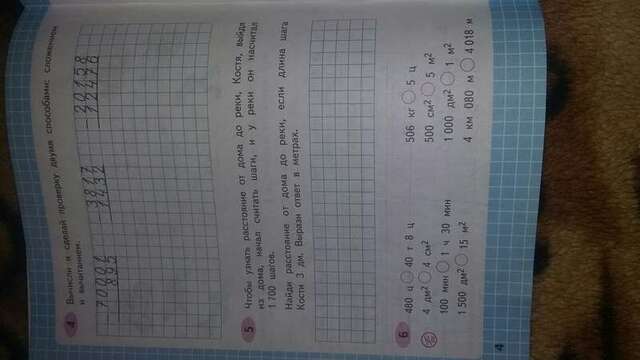 4 Вычисли и сделай проверку двумя способами: сложением
и вычитанием.
5 Чтобы узнать расстояние от дома до реки, Костя, выйдя
из дома, начал считать шаги, и у реки он насчитал
1 700 шагов.
Найди расстояние от дома до реки, если длина шага
Кости 3 дм. Вырази ответ в метрах.
6 480 ц 40 т 8 ц 506 кг 5 ц
4 дм² 4 см² 500 см² 5 м²
100 мин 1 ч 30 мин 1 000 дм² 1 м²
1 500 дм² 15 м² 4 км 080 м 4 018 м
4